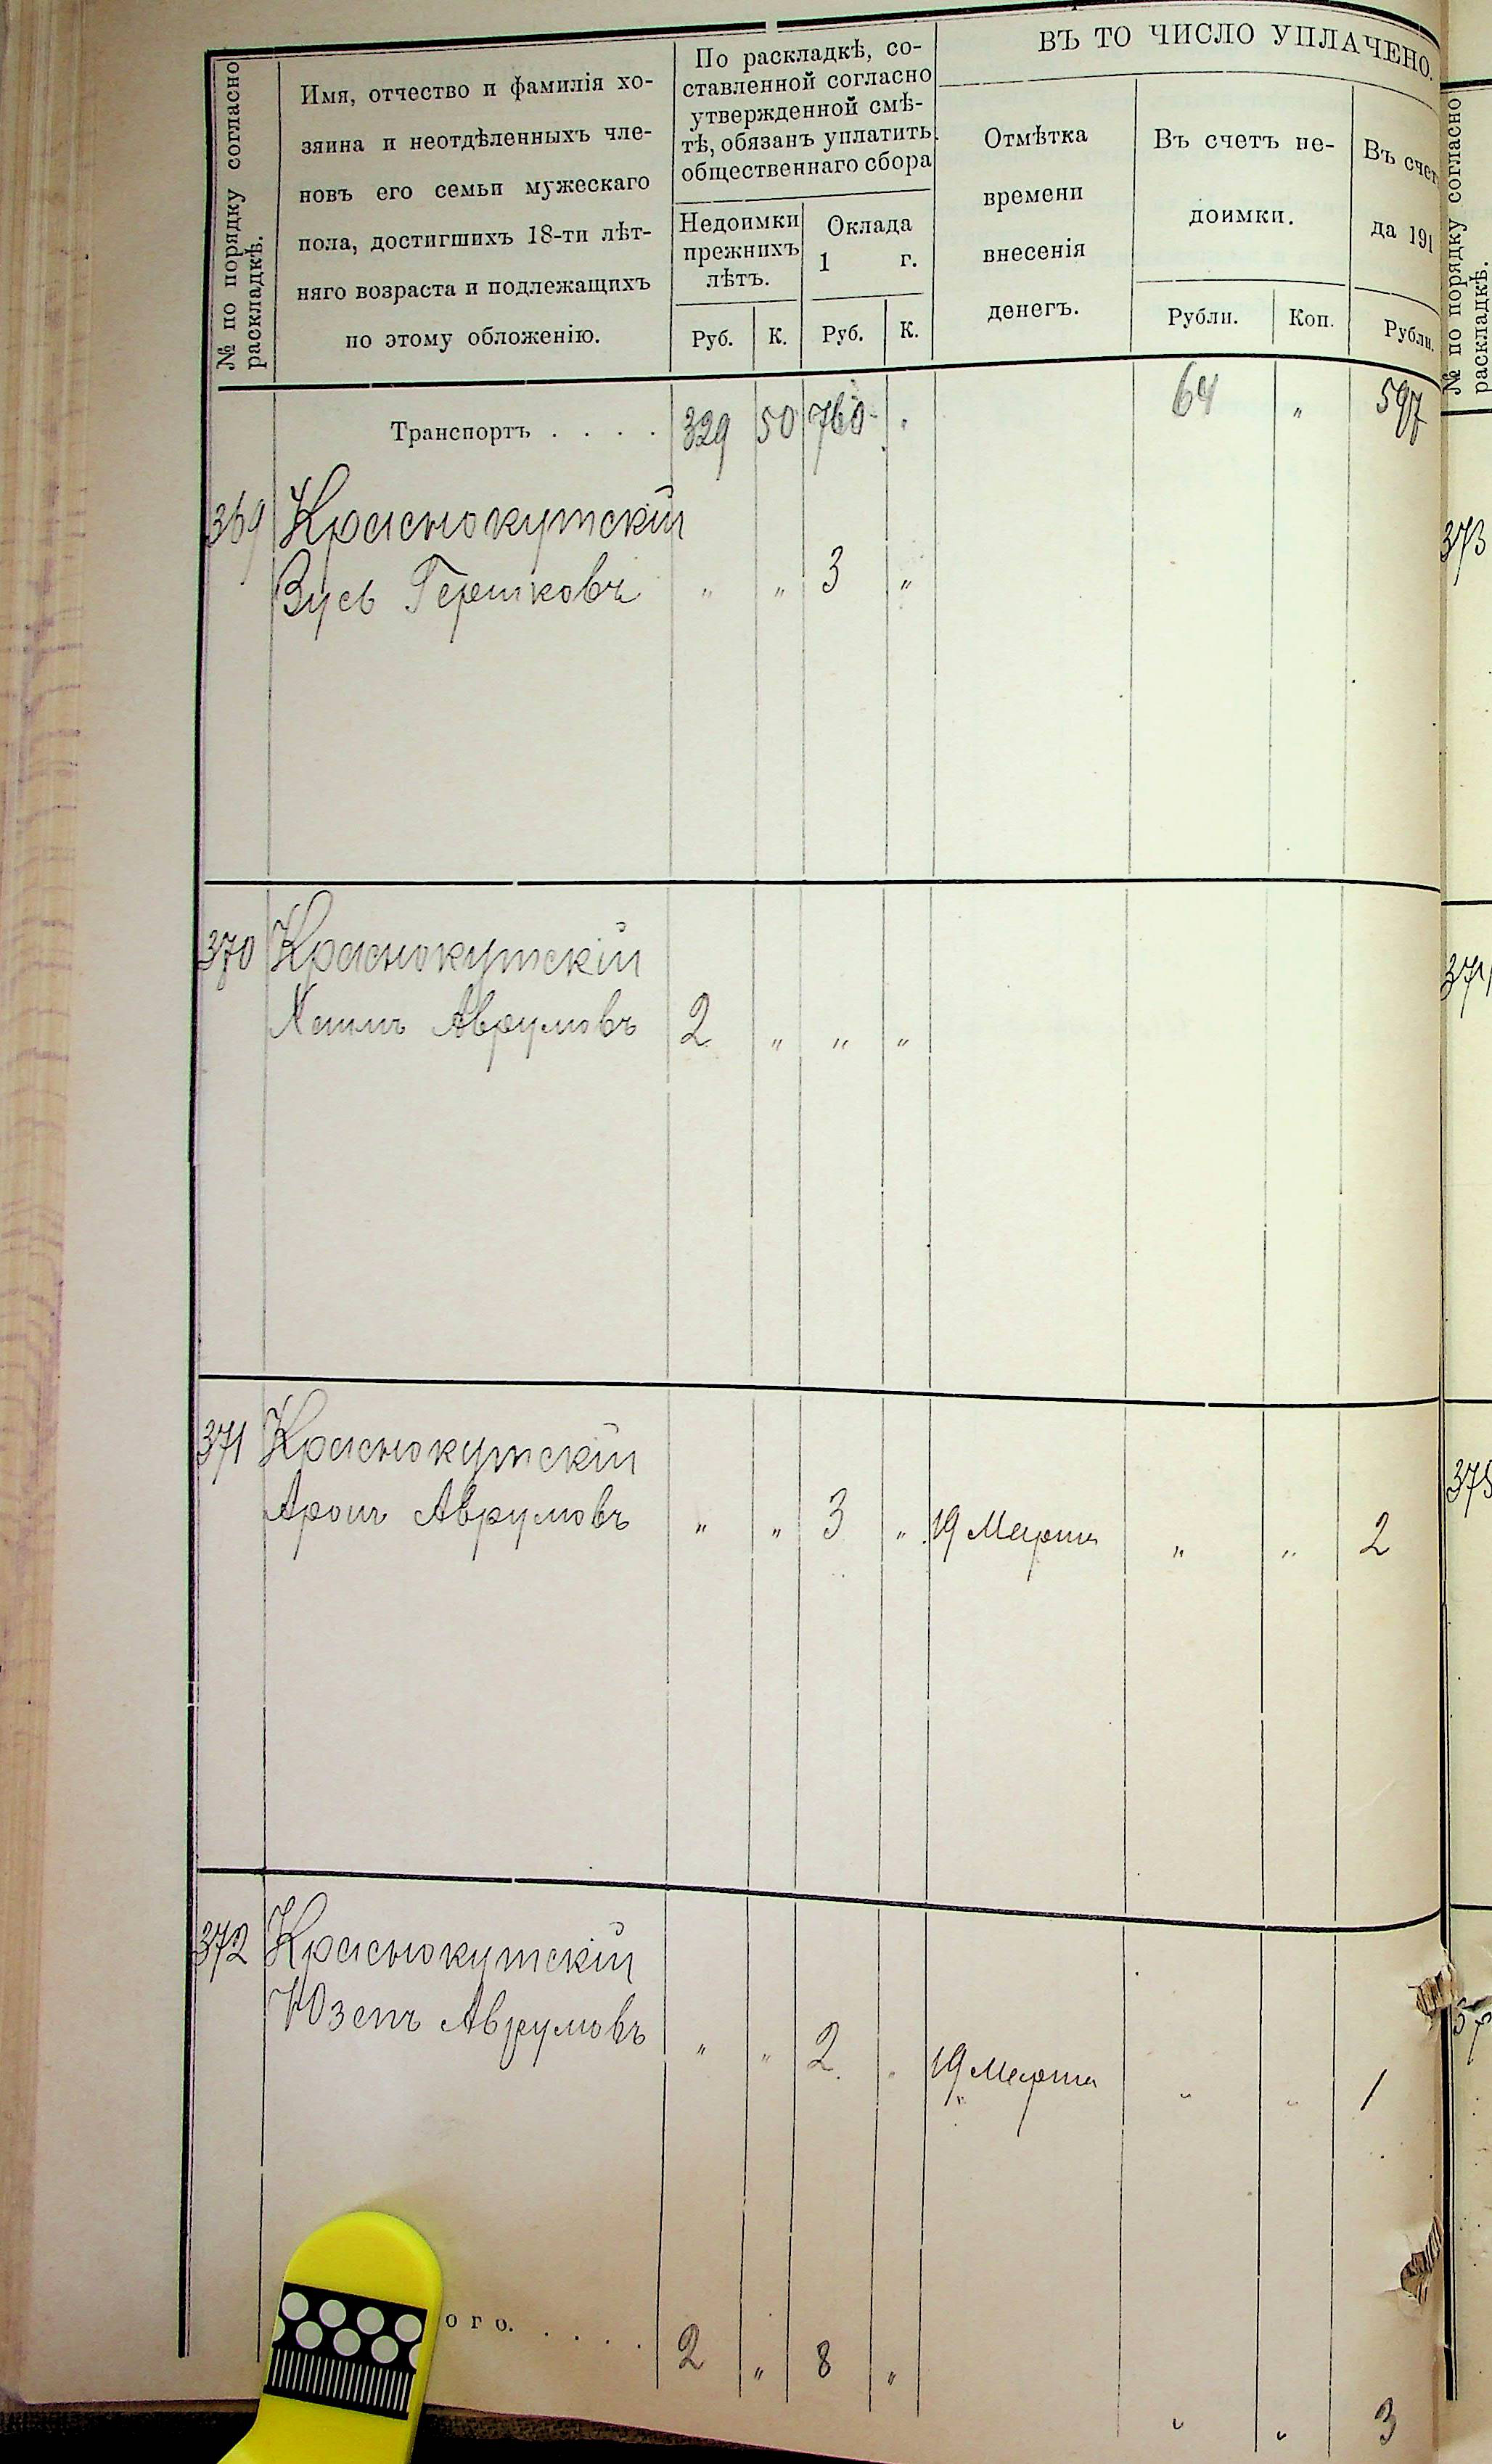 № по порядку согласно
раскладкѣ.
Имя, отчество и фамилія хо-
зяина и неотдѣленныхъ чле-
новъ его семьи мужескаго
пола, достигшихъ 18-ти лѣт-
няго возраста и подлежащихъ
по этому обложенію.
По раскладкѣ, со-
ставленной согласно
утвержденной смѣ-
тѣ, обязанъ уплатить
общественнаго сбора
Недоимки
прежнихъ
лѣтъ.
Руб. К.
Оклада
1 г.
Руб. К.
ВЪ ТО ЧИСЛО УПЛАЧЕНО.
Отмѣтка
времени
внесенія
денегъ.
Въ счетъ не-
доимки.
Рубли. Коп.
Въ счет
да 191
Рубли.
Транспортъ . . . . 329 50 760 " 64 " 597
369 Краснокутскій
Зусь Гершковъ " " 3 "
370 Краснокутскій
Хаимъ Аврумовъ 2 " " "
371 Краснокутскій
Аронъ Аврумовъ " " 3 " 19 Марта " " 2
372 Краснокутскій
Юзепъ Аврумовъ " " 2 " 19 Марта " " 1
ого. . . . . 2 " 8 " " " 3
№ по порядку согласно
раскладкѣ.
373